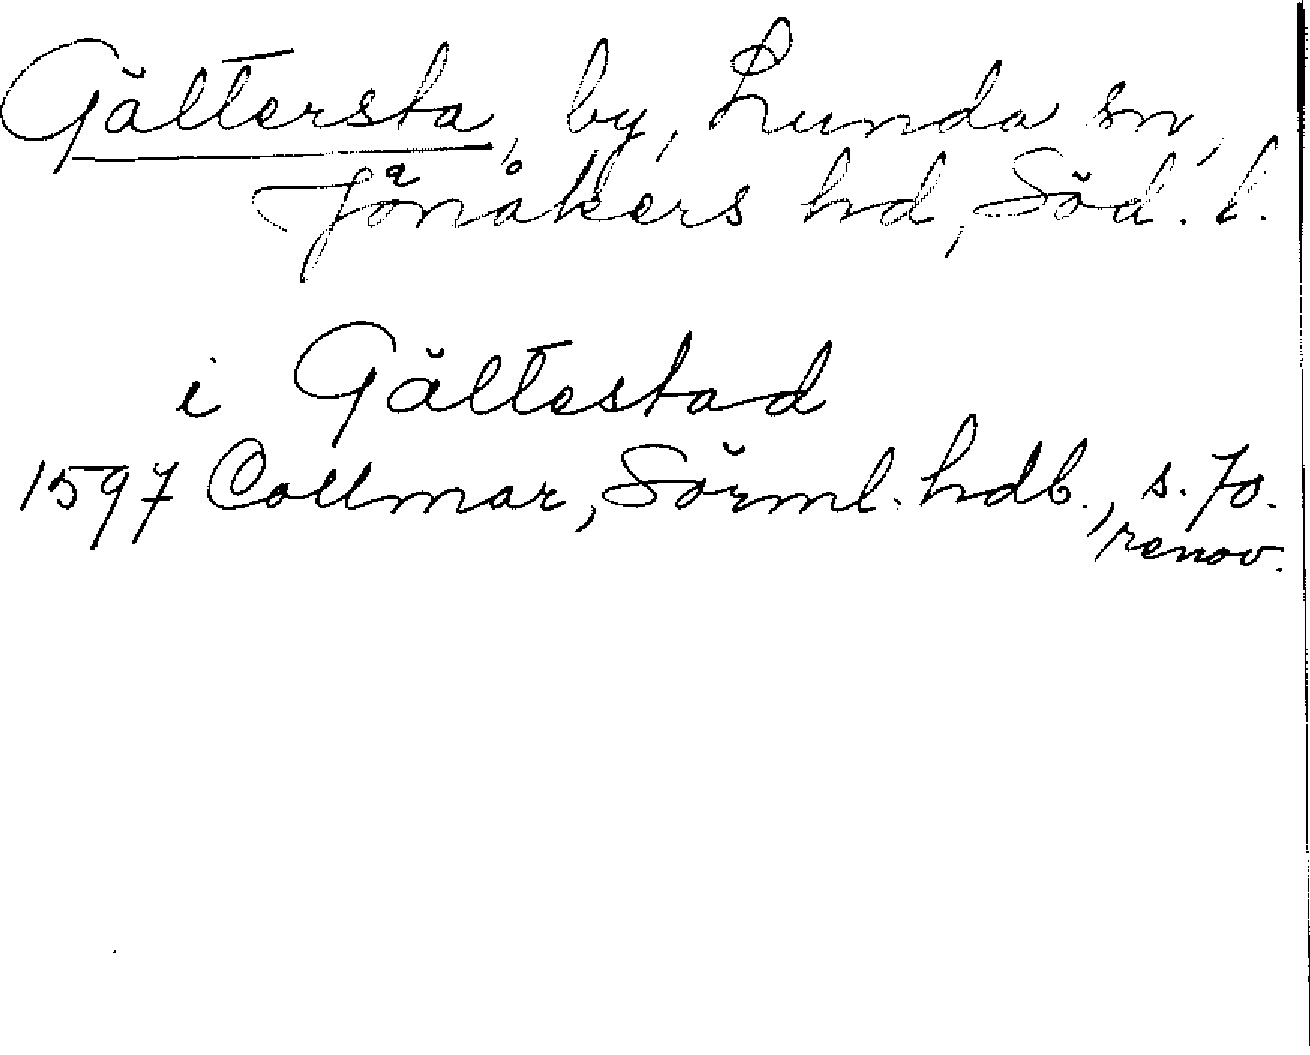 Gältersta, by, Lunda sn,
Jönåkers hd, Söd. l.
i Gältestad
1597 Collmar, Sörml. hdb., s. 70.
renov.